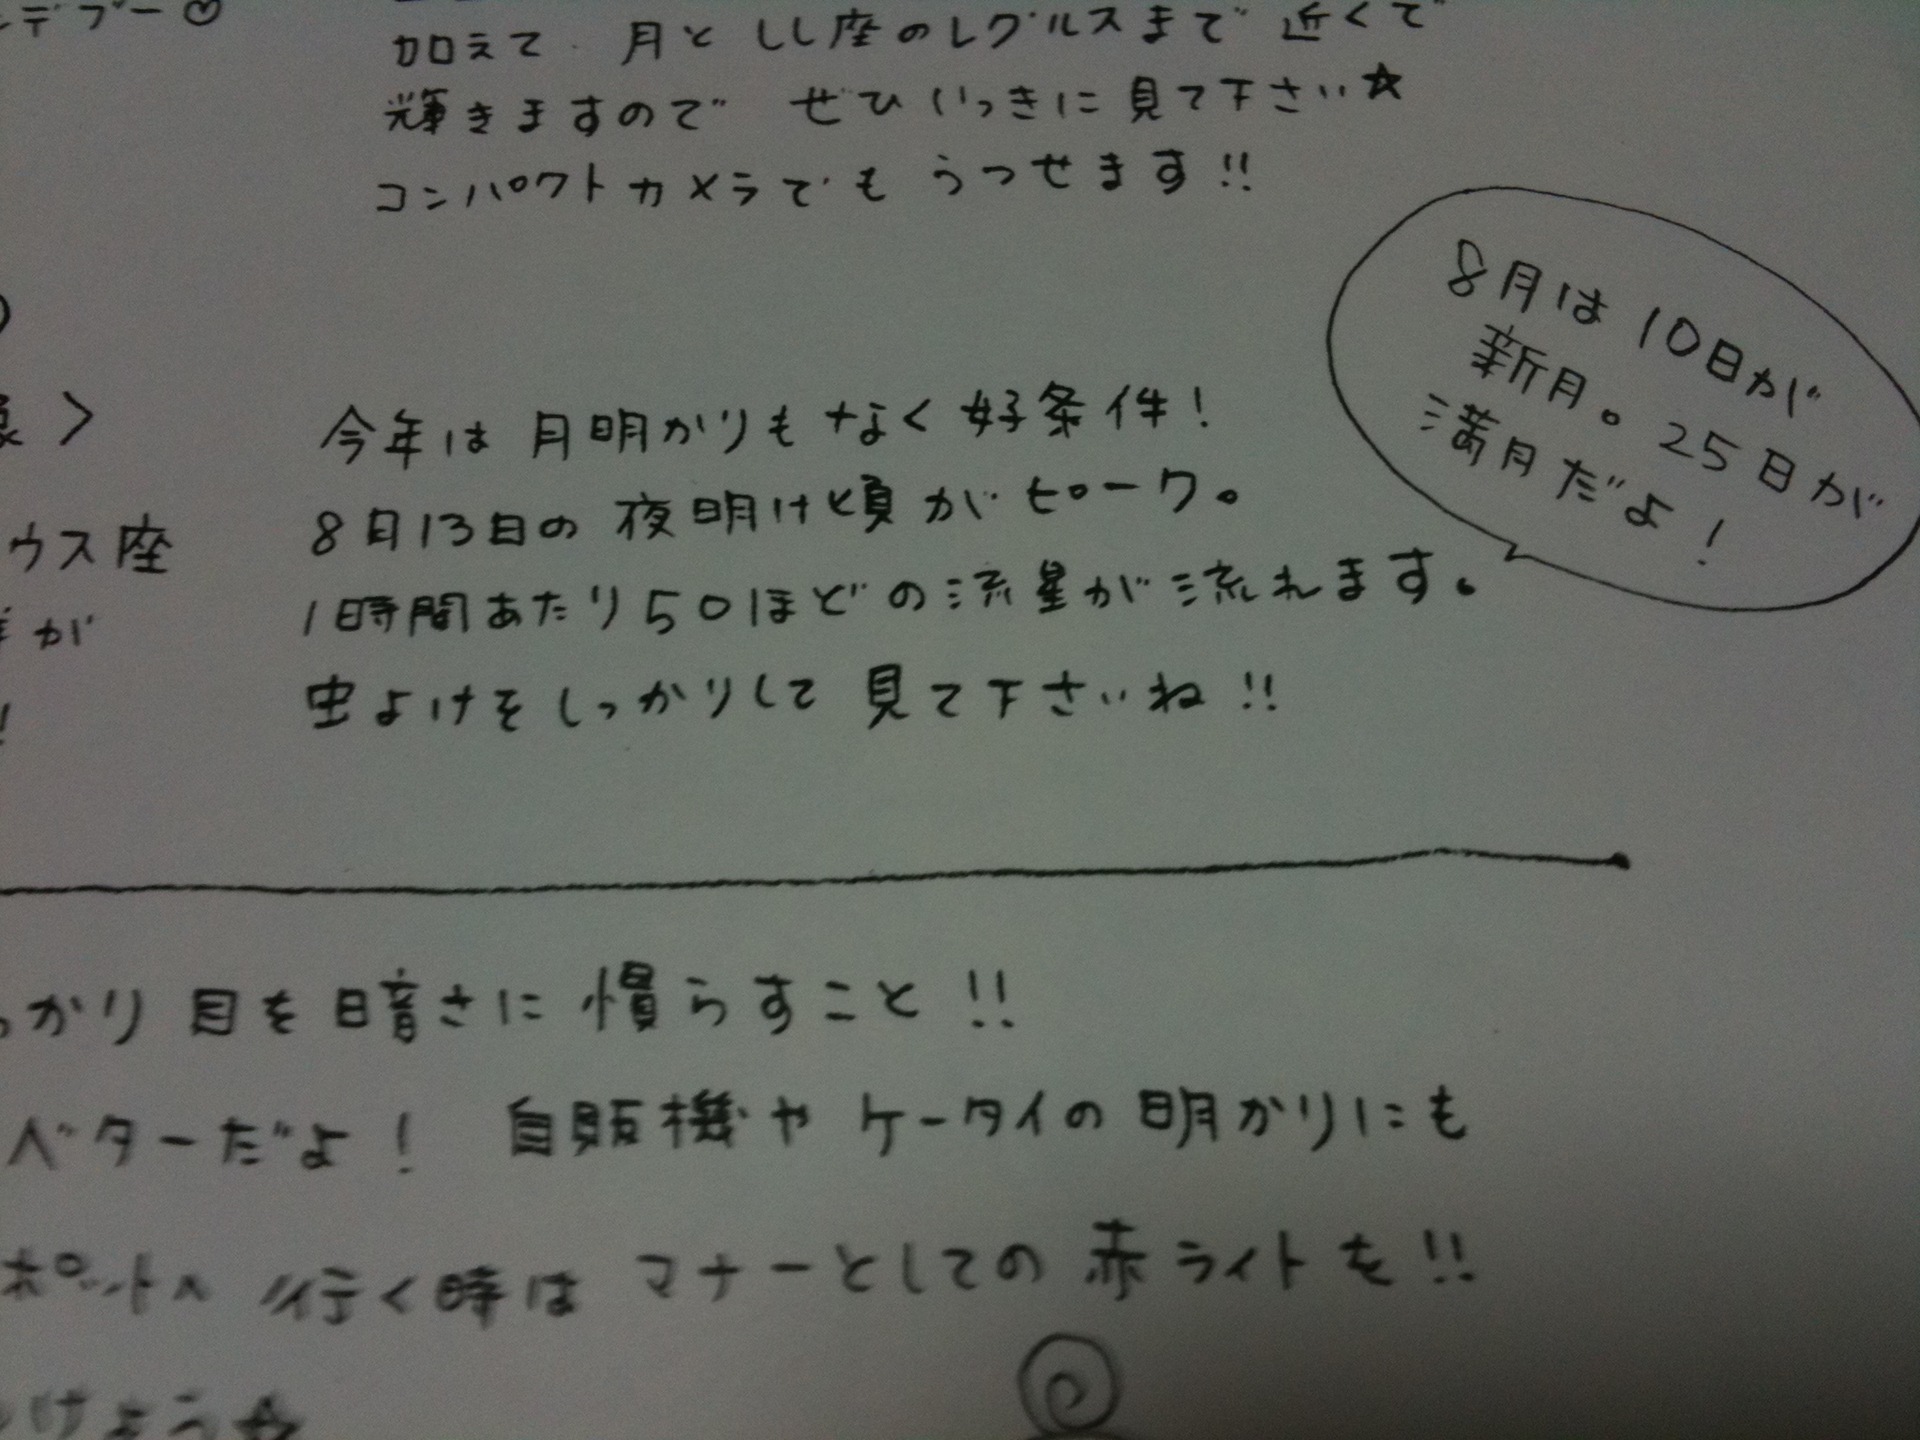 デブー♡
加えて 月と しし座のレグルスまで 近くで
輝きますので ぜひいっきに見て下さい☆
コンパクトカメラでも うつせます!!
8月は10日が
新月。25日が
満月だよ!
今年は月明かりもなく好条件!
ウス座
8月13日の夜明け頃がピーク。
が
1時間あたり50ほどの流星が流れます。
虫よけをしっかりして見て下さいね!!
かり目を暗さに慣らすこと!!
ベターだよ! 自販機やケータイの明かりにも
ポットへ行く時はマナーとしての赤ライトを!!
けよう☆